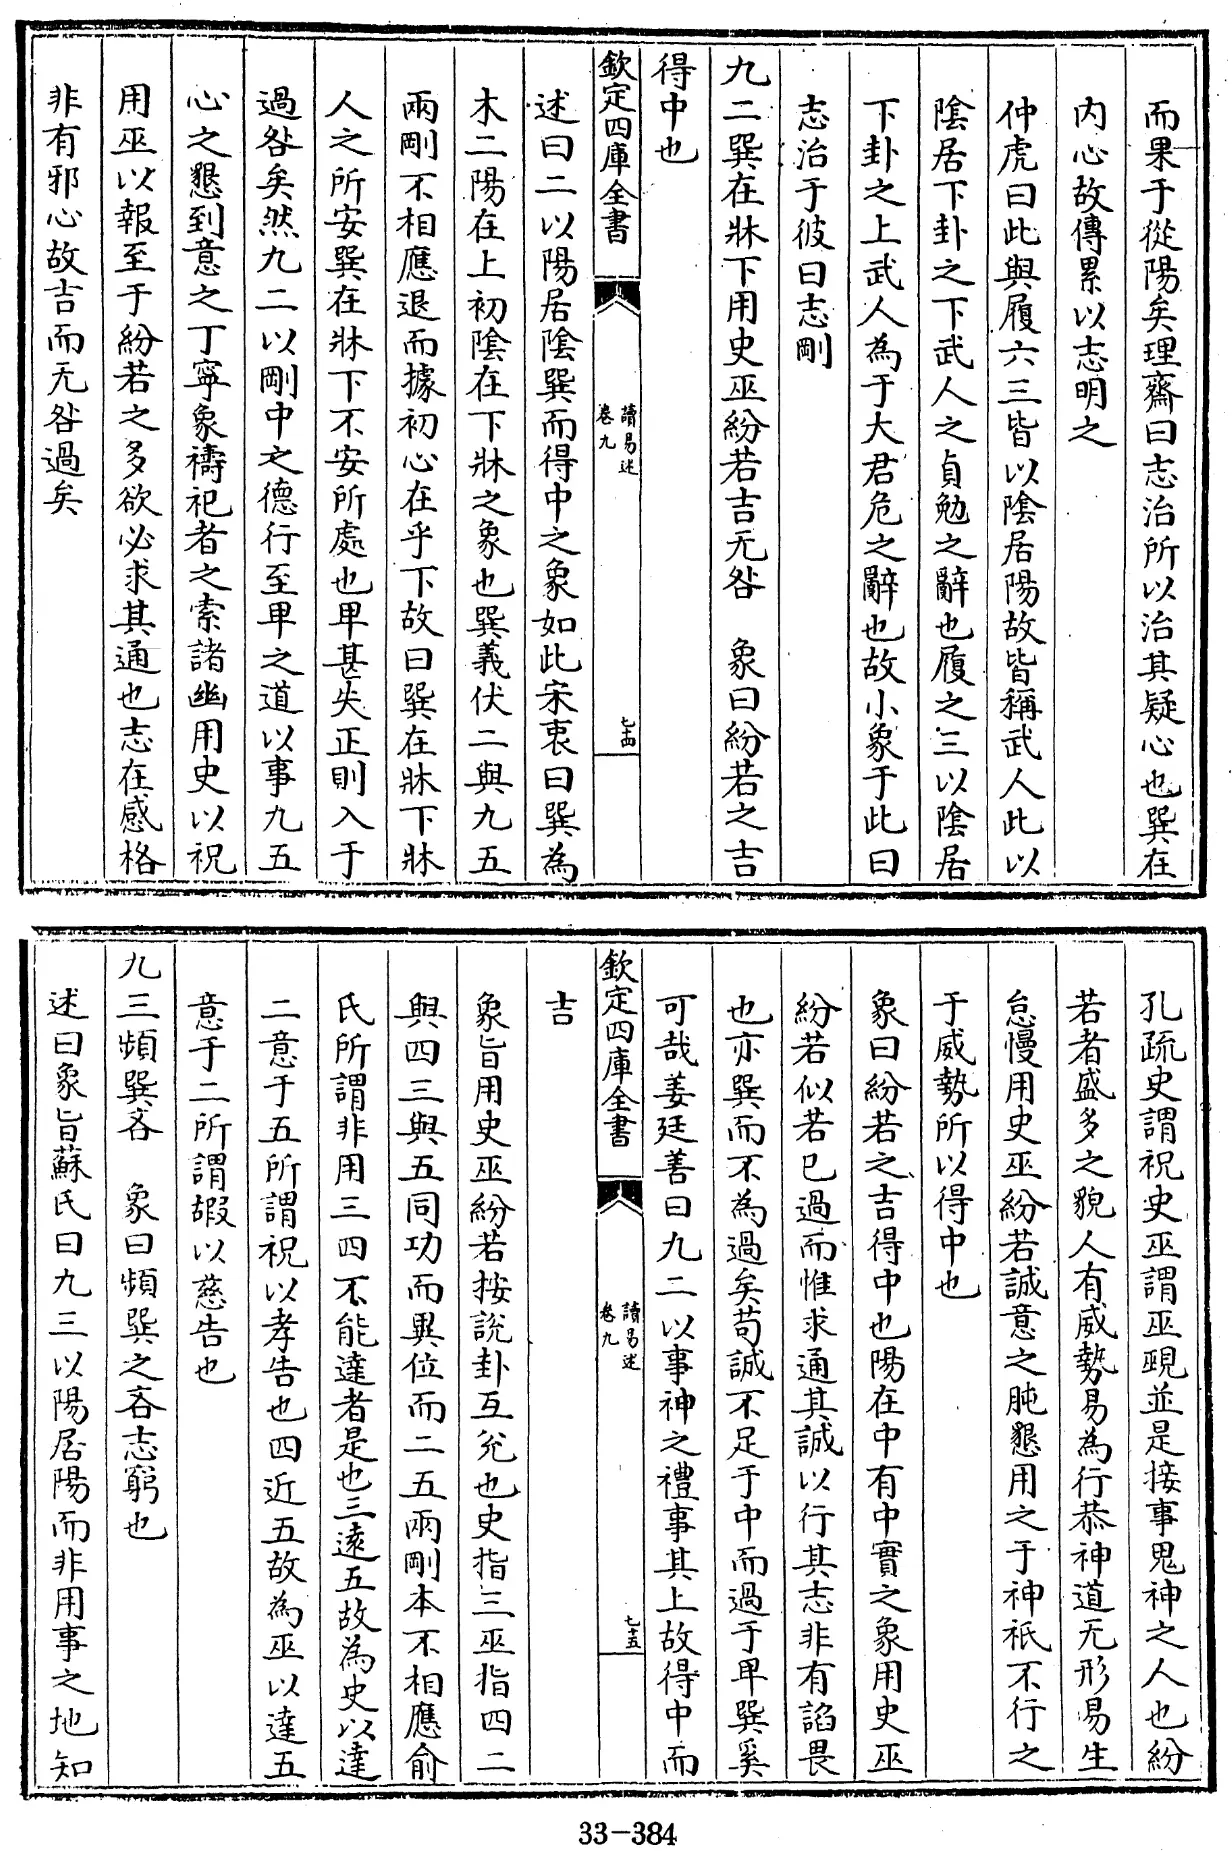 而果于從陽矣理齋曰志治所以治其疑心也巽在
内心故傳累以志明之
仲虎曰此與履六三皆以陰居陽故皆稱武人此以
陰居下卦之下武人之貞勉之辭也履之三以陰居
下卦之上武人為于大君危之辭也故小象于此曰
志治于彼曰志剛
九二巽在牀下用史巫紛若吉无咎　象曰紛若之吉
得中也
欽定四庫全書
讀易述
卷九
七十四
述曰二以陽居陰巽而得中之象如此宋衷曰巽為
木二陽在上初陰在下牀之象也巽義伏二與九五
兩剛不相應退而據初心在乎下故曰巽在牀下牀
人之所安巽在牀下不安所處也卑甚失正則入于
過咎矣然九二以剛中之德行至卑之道以事九五
心之懇到意之丁寧象禱祀者之索諸幽用史以祝
用巫以報至于紛若之多欲必求其通也志在感格
非有邪心故吉而无咎過矣
孔疏史謂祝史巫謂巫覡並是接事鬼神之人也紛
若者盛多之貌人有威勢易為行恭神道无形易生
怠慢用史巫紛若誠意之肫懇用之于神祇不行之
于威勢所以得中也
象曰紛若之吉得中也陽在中有中實之象用史巫
紛若似若已過而惟求通其誠以行其志非有諂畏
也亦巽而不為過矣苟誠不足于中而過于卑巽奚
可哉姜廷善曰九二以事神之禮事其上故得中而
欽定四庫全書
讀易述
卷九
七十五
吉
象旨用史巫紛若按說卦互兊也史指三巫指四二
與四三與五同功而異位而二五兩剛本不相應俞
氏所謂非用三四不能達者是也三遠五故為史以達
二意于五所謂祝以孝告也四近五故為巫以達五
意于二所謂嘏以慈告也
九三頻巽吝　象曰頻巽之吝志窮也
述曰象旨蘇氏曰九三以陽居陽而非用事之地知
33-384